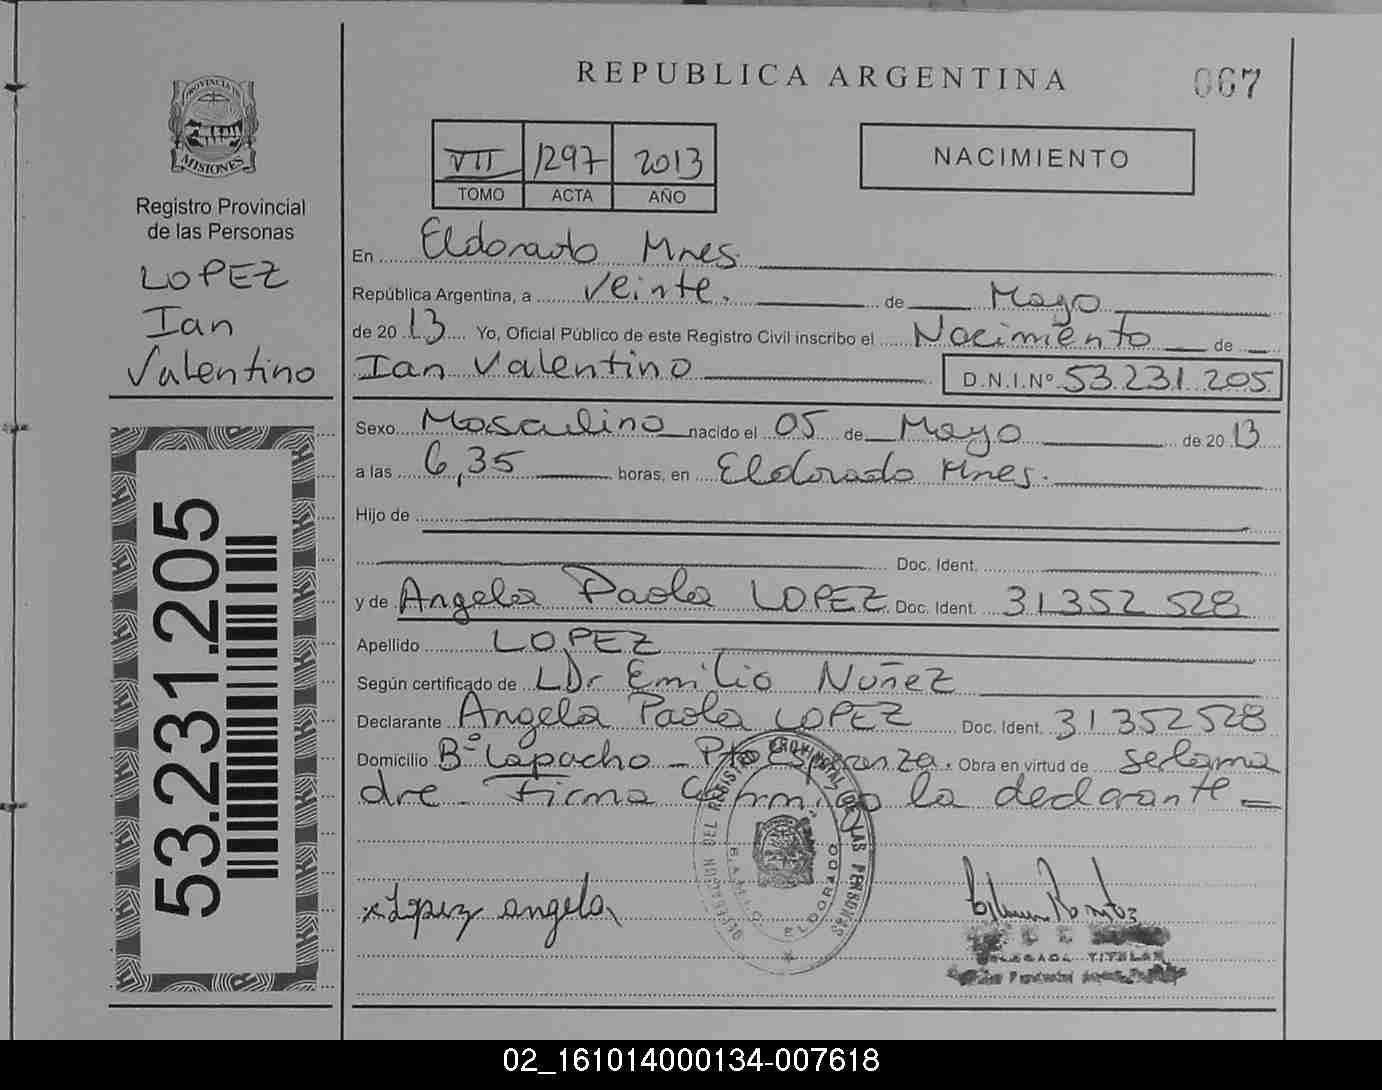 REPUBLICA ARGENTINA
067
PROVINCIA DE
MISIONES
Registro Provincial
de las Personas
LOPEZ
Ian
Valentino
53.231.205
VII 1297 2013
TOMO ACTA AÑO
NACIMIENTO
En Eldorado Mnes.
República Argentina, a veinte. de Mayo
de 20 13 Yo, Oficial Público de este Registro Civil inscribo el Nacimiento de
Ian Valentino D.N.I.Nº 53.231.205
Sexo Masculino nacido el 05 de Mayo de 20 13
a las 6,35 horas, en Eldorado Mnes.
Hijo de
Doc. Ident.
y de Angela Paola LOPEZ Doc. Ident. 31352 528
Apellido LOPEZ
Según certificado de Dr Emilio Nuñez
Declarante Angela Paola LOPEZ Doc. Ident. 31352528
Domicilio Bº Lapacho - Pto Esperanza. Obra en virtud de ser la ma
dre - Firma la declarante =
x Lopez angela
DEL REGISTRO PROVINCIAL DE LAS PERSONAS
ELDORADO
DELEGADA TITULAR
02_161014000134-007618